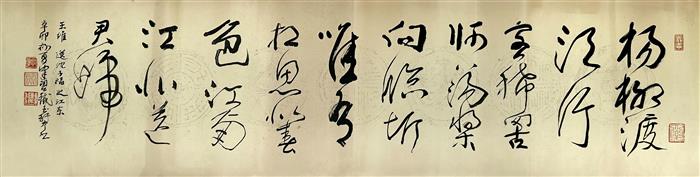 杨柳渡
头行
客稀罟
师荡桨
向临圻
唯有
相思似春
色江南
江北送
君归
王维 送沈子福之江东
辛卯初夏